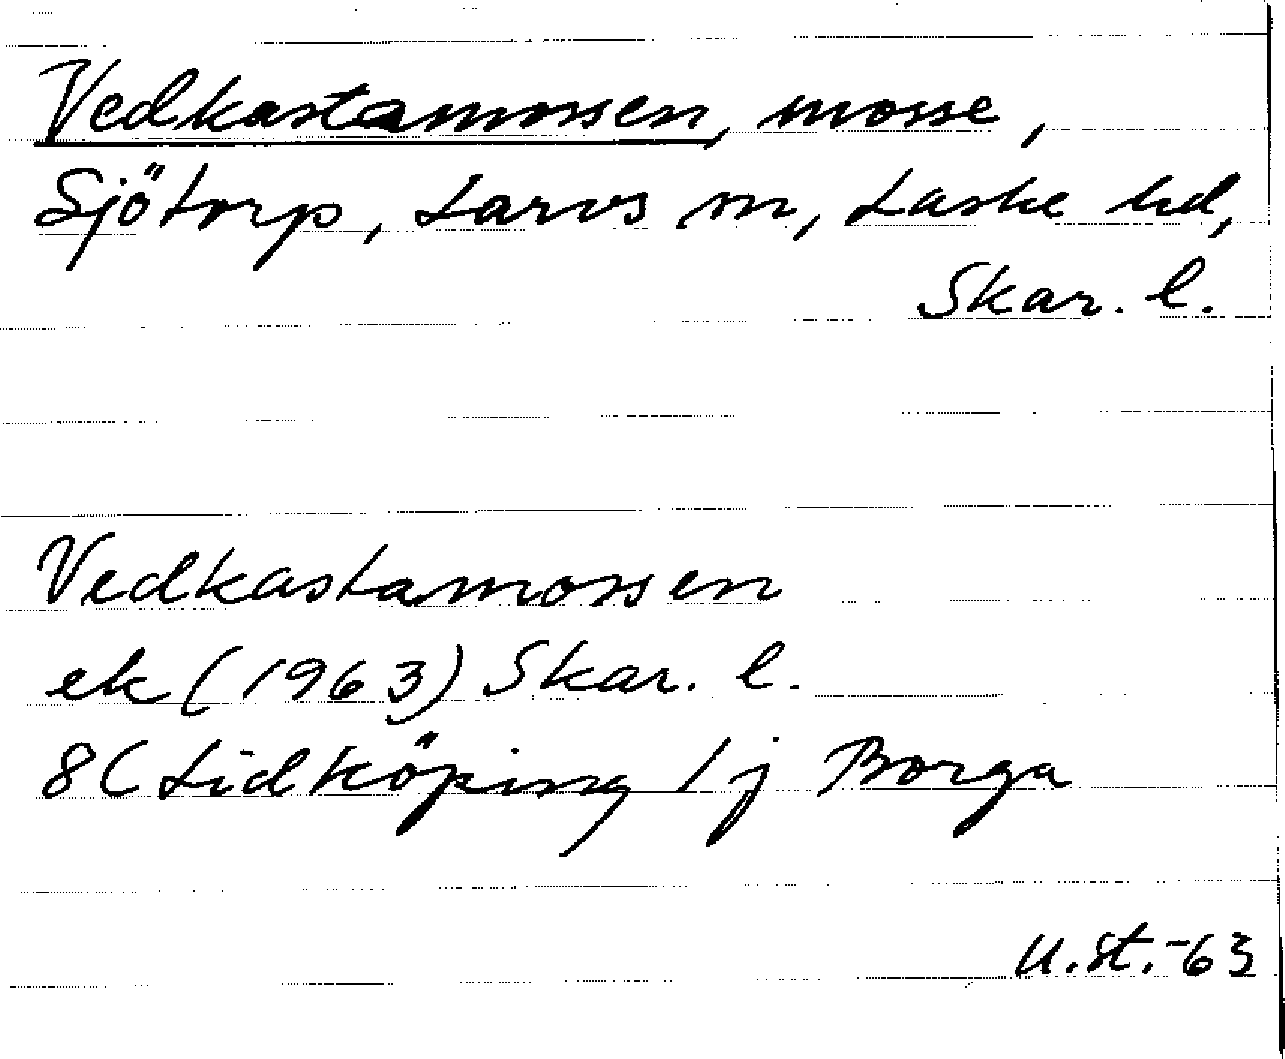 Vedkastamossen, mosse,
Sjötorp, Larvs sn, Laske hd,
Skar. l.
Vedkastamossen
ek (1963) Skar. l.
8C Lidköping 1j Borga
U.St.-63